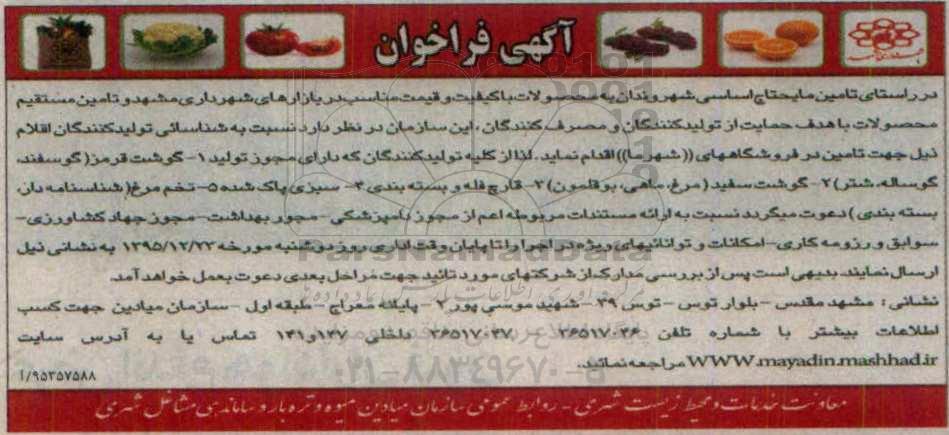 آگهی فراخوان
در راستای تامین مایحتاج اساسی شهروندان به محصولات با کیفیت و قیمت مناسب در بازارهای شهرداری مشهد و تامین مستقیم
محصولات با هدف حمایت از تولیدکنندگان و مصرف کنندگان ، این سازمان در نظر دارد نسبت به شناسائی تولیدکنندگان اقلام
ذیل جهت تامین در فروشگاههای ((شهرما)) اقدام نماید. لذا از کلیه تولیدکنندگان که دارای مجوز تولید ۱- گوشت قرمز( گوسفند،
گوساله، شتر) ۲- گوشت سفید ( مرغ، ماهی، بوقلمون) ۳- قارچ فله و بسته بندی ۴- سبزی پاک شده ۵- تخم مرغ( شناسنامه دار،
بسته بندی ) دعوت میگردد نسبت به ارائه مستندات مربوطه اعم از مجوز دامپزشکی - مجوز بهداشت - مجوز جهاد کشاورزی -
سوابق و رزومه کاری - امکانات و توانائیهای ویژه در اجرا را تا پایان وقت اداری روز دوشنبه مورخه ۱۳۹۵/۱۲/۲۳ به نشانی ذیل
ارسال نمایند. بدیهی است پس از بررسی مدارک از شرکتهای مورد تائید جهت مراحل بعدی دعوت بعمل خواهد آمد.
نشانی : مشهد مقدس - بلوار توس - توس ۳۹ - شهید موسی پور ۲ - پایانه معراج - طبقه اول - سازمان میادین جهت کسب
اطلاعات بیشتر با شماره تلفن ۳۶۵۱۷۰۴۶ - ۳۶۵۱۷۰۴۷ داخلی ۱۴۷و۱۴۱ تماس یا به آدرس سایت
WWW.mayadin.mashhad.ir مراجعه نمائید.
۹۵۳۵۷۵۸۸/آ
معاونت خدمات و محیط زیست شهری - روابط عمومی سازمان میادین میوه و تره بار و ساماندهی مشاغل شهری
ParsNamadData
۰۲۱-۸۸۳۴۹۶۷۰-۵